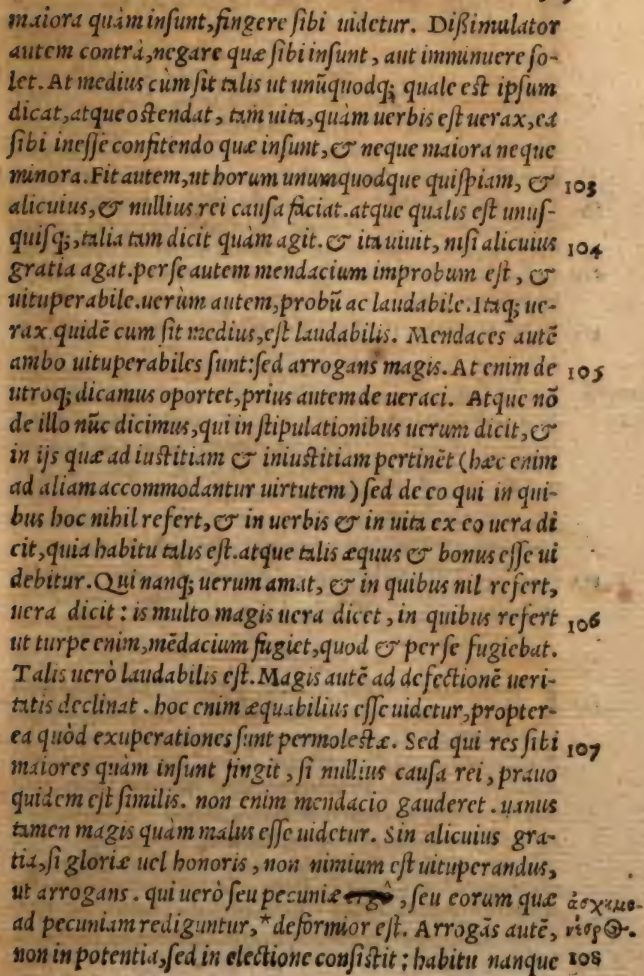 maiora quàm inſunt, fingere ſibi uidetur. Dißimulator
autem contrà, negare quæ ſibi inſunt, aut imminuere ſo-
let. At medius cùm ſit talis ut unũquodq; quale eſt ipſum
dicat, atque oſtendat, tam uita, quàm uerbis eſt uerax, ea
ſibi ineſſe confitendo quæ inſunt, & neque maiora neque
minora. Fit autem, ut horum unumquodque quiſpiam, & 103
alicuius, & nullius rei cauſa faciat. atque qualis eſt unuſ-
quiſq;, talia tam dicit quàm agit. & ita uiuit, niſi alicuius 104
gratia agat. per ſe autem mendacium improbum eſt, &
uituperabile. uerùm autem, probũ ac laudabile. Itaq; ue-
rax quidẽ cum ſit medius, eſt laudabilis. Mendaces autẽ
ambo uituperabiles ſunt: ſed arrogans magis. At enim de 105
utroq; dicamus oportet, prius autem de ueraci. Atque nõ
de illo nũc dicimus, qui in ſtipulationibus uerum dicit, &
in ijs quæ ad iuſtitiam & iniuſtitiam pertinẽt (hæc enim
ad aliam accommodantur uirtutem) ſed de eo qui in qui-
bus hoc nihil refert, & in uerbis & in uita ex eo uera di
cit, quia habitu talis eſt. atque talis æquus & bonus eſſe ui
debitur. Qui nanq; uerum amat, & in quibus nil refert,
uera dicit: is multo magis uera dicet, in quibus refert 106
ut turpe enim, mẽdacium fugiet, quod & per ſe fugiebat.
Talis uerò laudabilis eſt. Magis autẽ ad defectionẽ ueri-
tatis declinat. hoc enim æquabilius eſſe uidetur, propter-
ea quòd exuperationes ſunt permoleſtæ. Sed qui res ſibi 107
maiores quàm inſunt fingit, ſi nullius cauſa rei, prauo
quidem eſt ſimilis. non enim mendacio gauderet. uanus
tamen magis quàm malus eſſe uidetur. Sin alicuius gra-
tia, ſi gloriæ uel honoris, non nimium eſt uituperandus,
ut arrogans. qui uerò ſeu pecuniæ ergô, ſeu eorum quæ ἀσχημο-
ad pecuniam rediguntur, *deformior eſt. Arrogãs autẽ, νέσερ@.
non in potentia, ſed in electione conſiſtit: habitu nanque 108